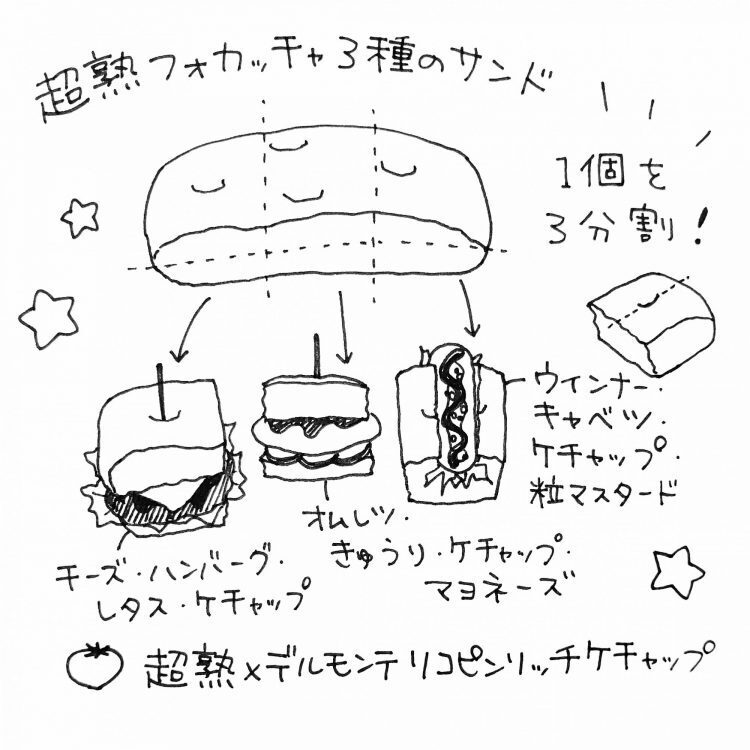 超熟フォカッチャ3種のサンド
1個を
3分割!
ウインナー・
キャベツ・
ケチャップ・
粒マスタード
オムレツ・
きゅうり・ケチャップ・
マヨネーズ
チーズ・ハンバーグ・
レタス・ケチャップ
超熟×デルモンテリコピンリッチケチャップ